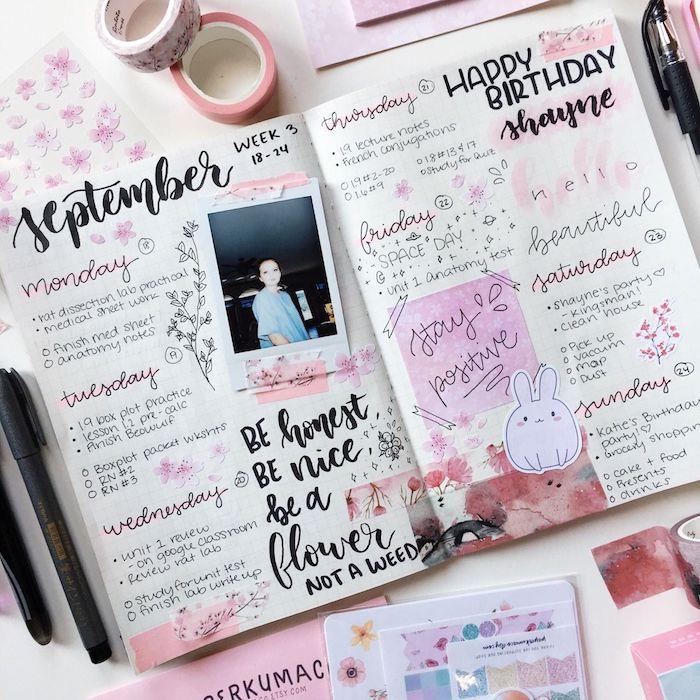 september
WEEK 3
18-24
monday 18
• rat dissection lab practical
• medical sheet work
o finish med sheet
o anatomy notes
tuesday 19
• 1.9 box plot practice
• lesson 1.2 pre-calc
• finish Beowulf
o Boxplot packet wkshts
o RN #2
o RN #3
wednesday 20
• unit 1 review
- on google classroom
• Review rat lab
o study for unit test
o finish lab write up
BE honest,
BE nice,
be a
flower
NOT A WEED
thursday 21
• 1.9 lecture notes
• French conjugations
o 1.9 #2-20
o 1.6 #9
o 1.8 #13 & 17
o study for Quiz
friday 22
SPACE DAY
• unit 1 anatomy test
stay
positive
HAPPY
BIRTHDAY
shayne
hello
hello
beautiful
saturday 23
• Shayne's party ♡
- Kingsman
• clean house
o Pick up
o vaccum
o mop
o Dust
sunday 24
• Katie's Birthday
party ♡
• Grocery shopping
o cake + food
o Presents
o drinks
PERKUMACO